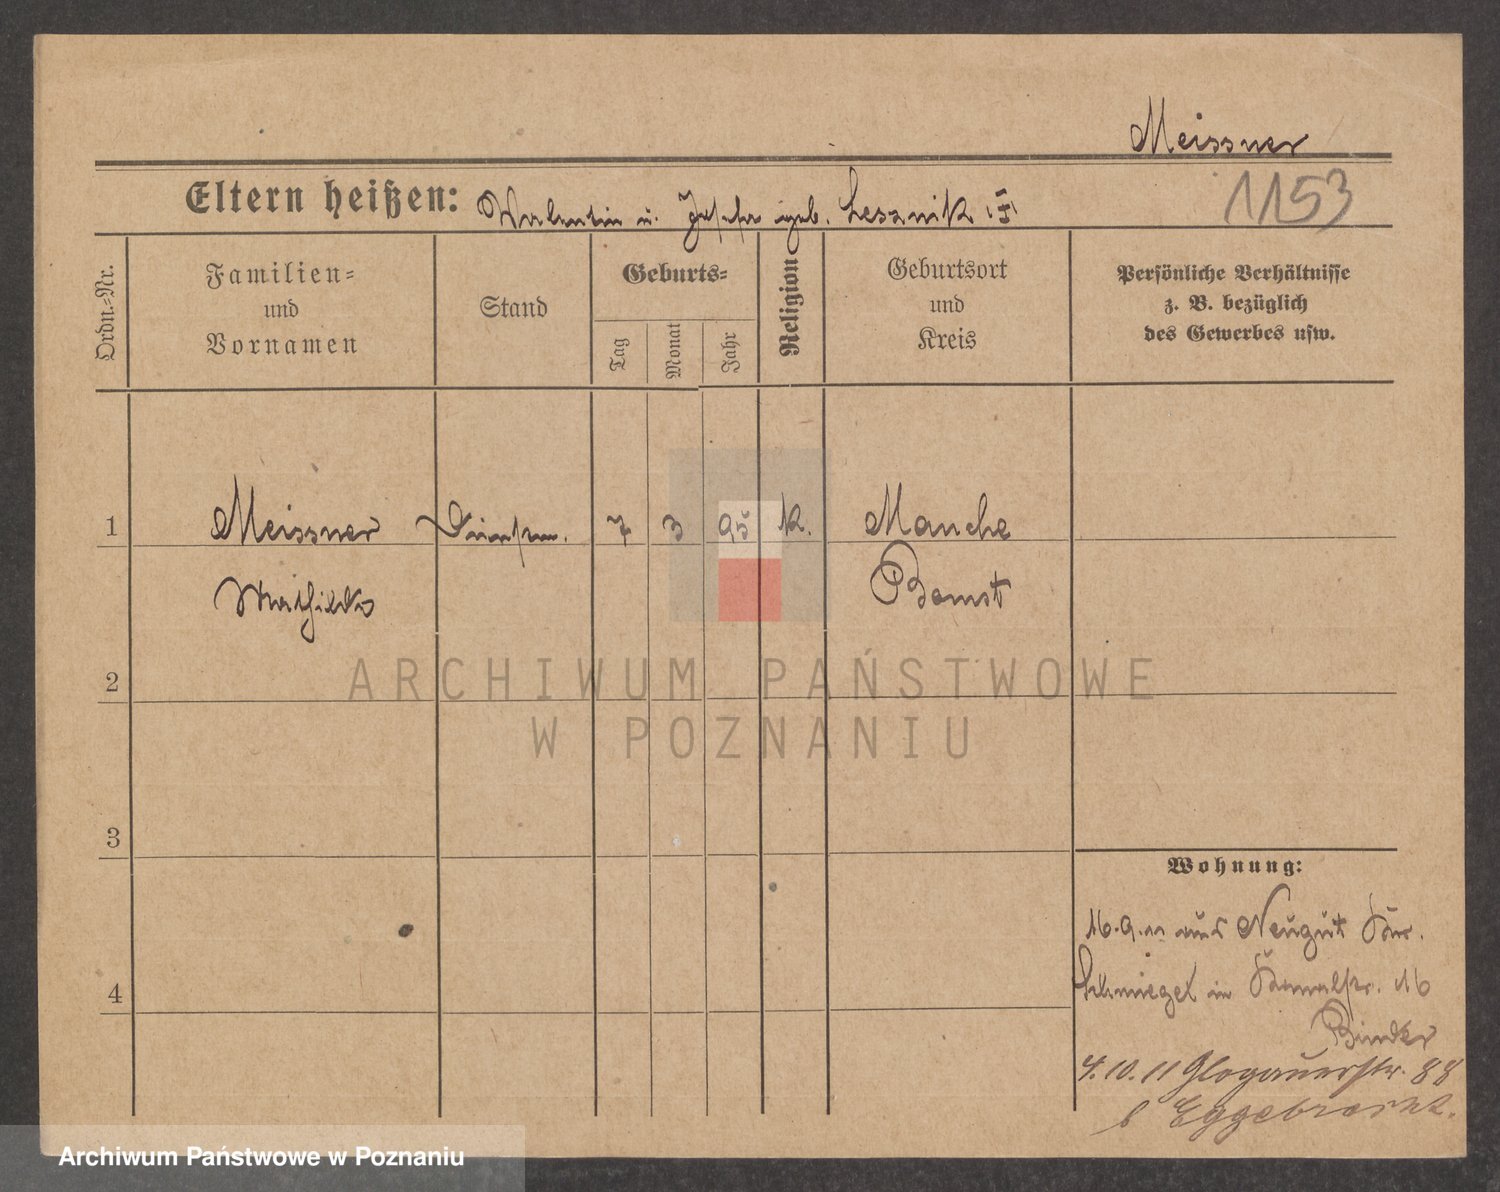 Meissner
Eltern heißen: Valentin u. Josefa geb. Lessnik
1153
Ordn.-Nr.
Familien-
und
Vornamen
Stand
Geburts-
Tag
Monat
Jahr
Religion
Geburtsort
und
Kreis
Persönliche Verhältnisse
z. B. bezüglich
des Gewerbes usw.
1 Meissner 7 3 95 K. Manche
Mathilde Bomst
2
3
4
Wohnung:
16.9.11 aus Neugut
Schmiegel in Kanalstr. 16
Binder
4.10.11 Glogauerstr. 88
b Eggebrecht.
ARCHIWUM PAŃSTWOWE
W POZNANIU
Archiwum Państwowe w Poznaniu